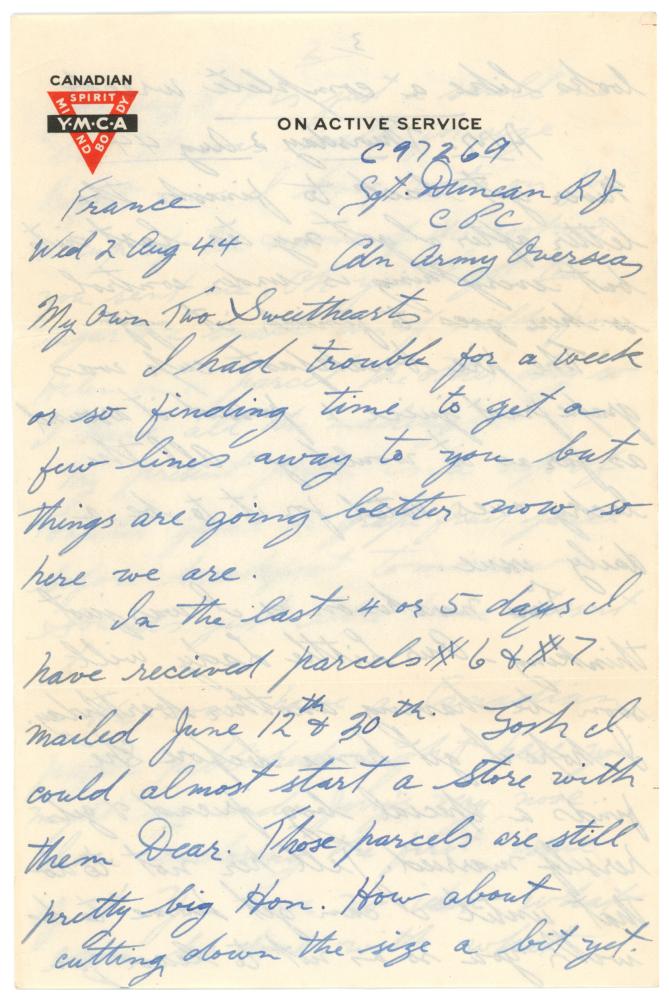 CANADIAN
SPIRIT
MIND
BODY
Y·M·C·A
ON ACTIVE SERVICE
C97269
Sgt. Duncan R J
C P C
Cdn Army Overseas
France
Wed 2 Aug 44
My Own Two Sweethearts
I had trouble for a week
or so finding time to get a
few lines away to you but
things are going better now so
here we are.
In the last 4 or 5 days I
have received parcels # 6 & # 7
mailed June 12th & 30th. Gosh I
could almost start a Store with
them Dear. Those parcels are still
pretty big Hon. How about
cutting down the size a bit yet.